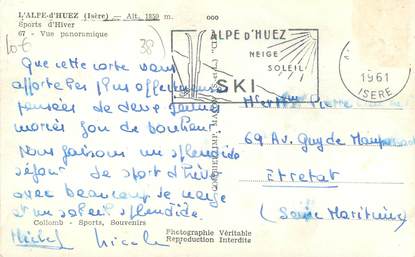 L'ALPE-d'HUEZ (Isère) — Alt. 1850 m.
Sports d'Hiver
67 - Vue panoramique
ooo
38
ALPE d'HUEZ
NEIGE
SOLEIL
SKI
1961
ISERE
Que cette carte vous
apporte les plus affectueuses
pensées de deux jeunes
mariés fou de bonheur
Nous faisons un splendide
séjour de sport d'hiver
avec beaucoup de neige
et un soleil splendide.
Michel Nicole
Pierre
69 Av. Guy de Maupassant
Etretat
(Seine Maritime)
Collomb - Sports, Souvenirs
Photographie Véritable
Reproduction Interdite